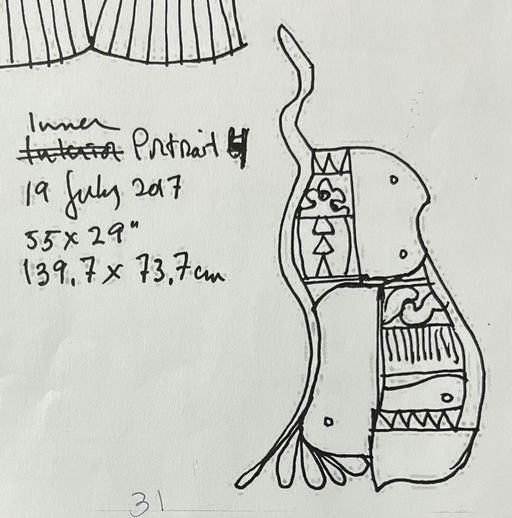 Inner
Interior Portrait 4
19 July 2017
55 x 29"
139.7 x 73.7cm
31